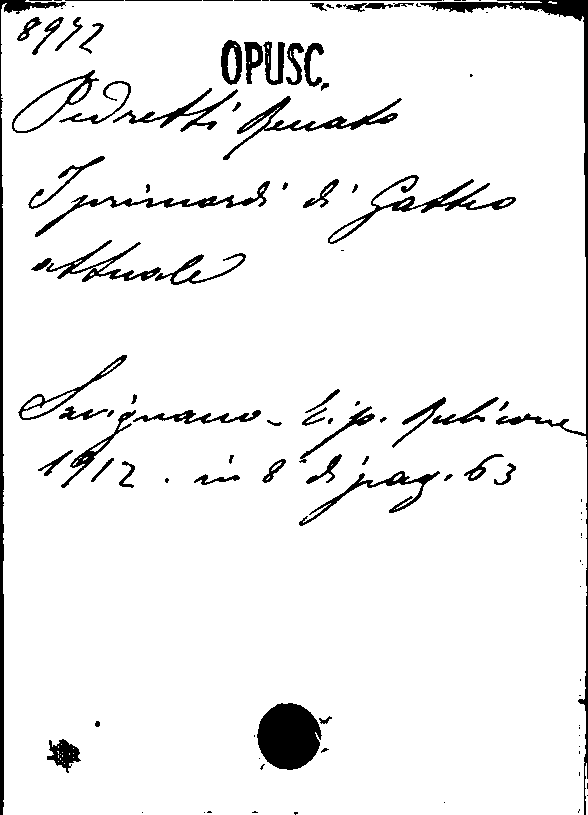 8972
OPUSC.
Pedretti Renato
I primordi di Gatteo
attuale
Savignano - Tip. Rubicone
1912. in 8° di pag. 63